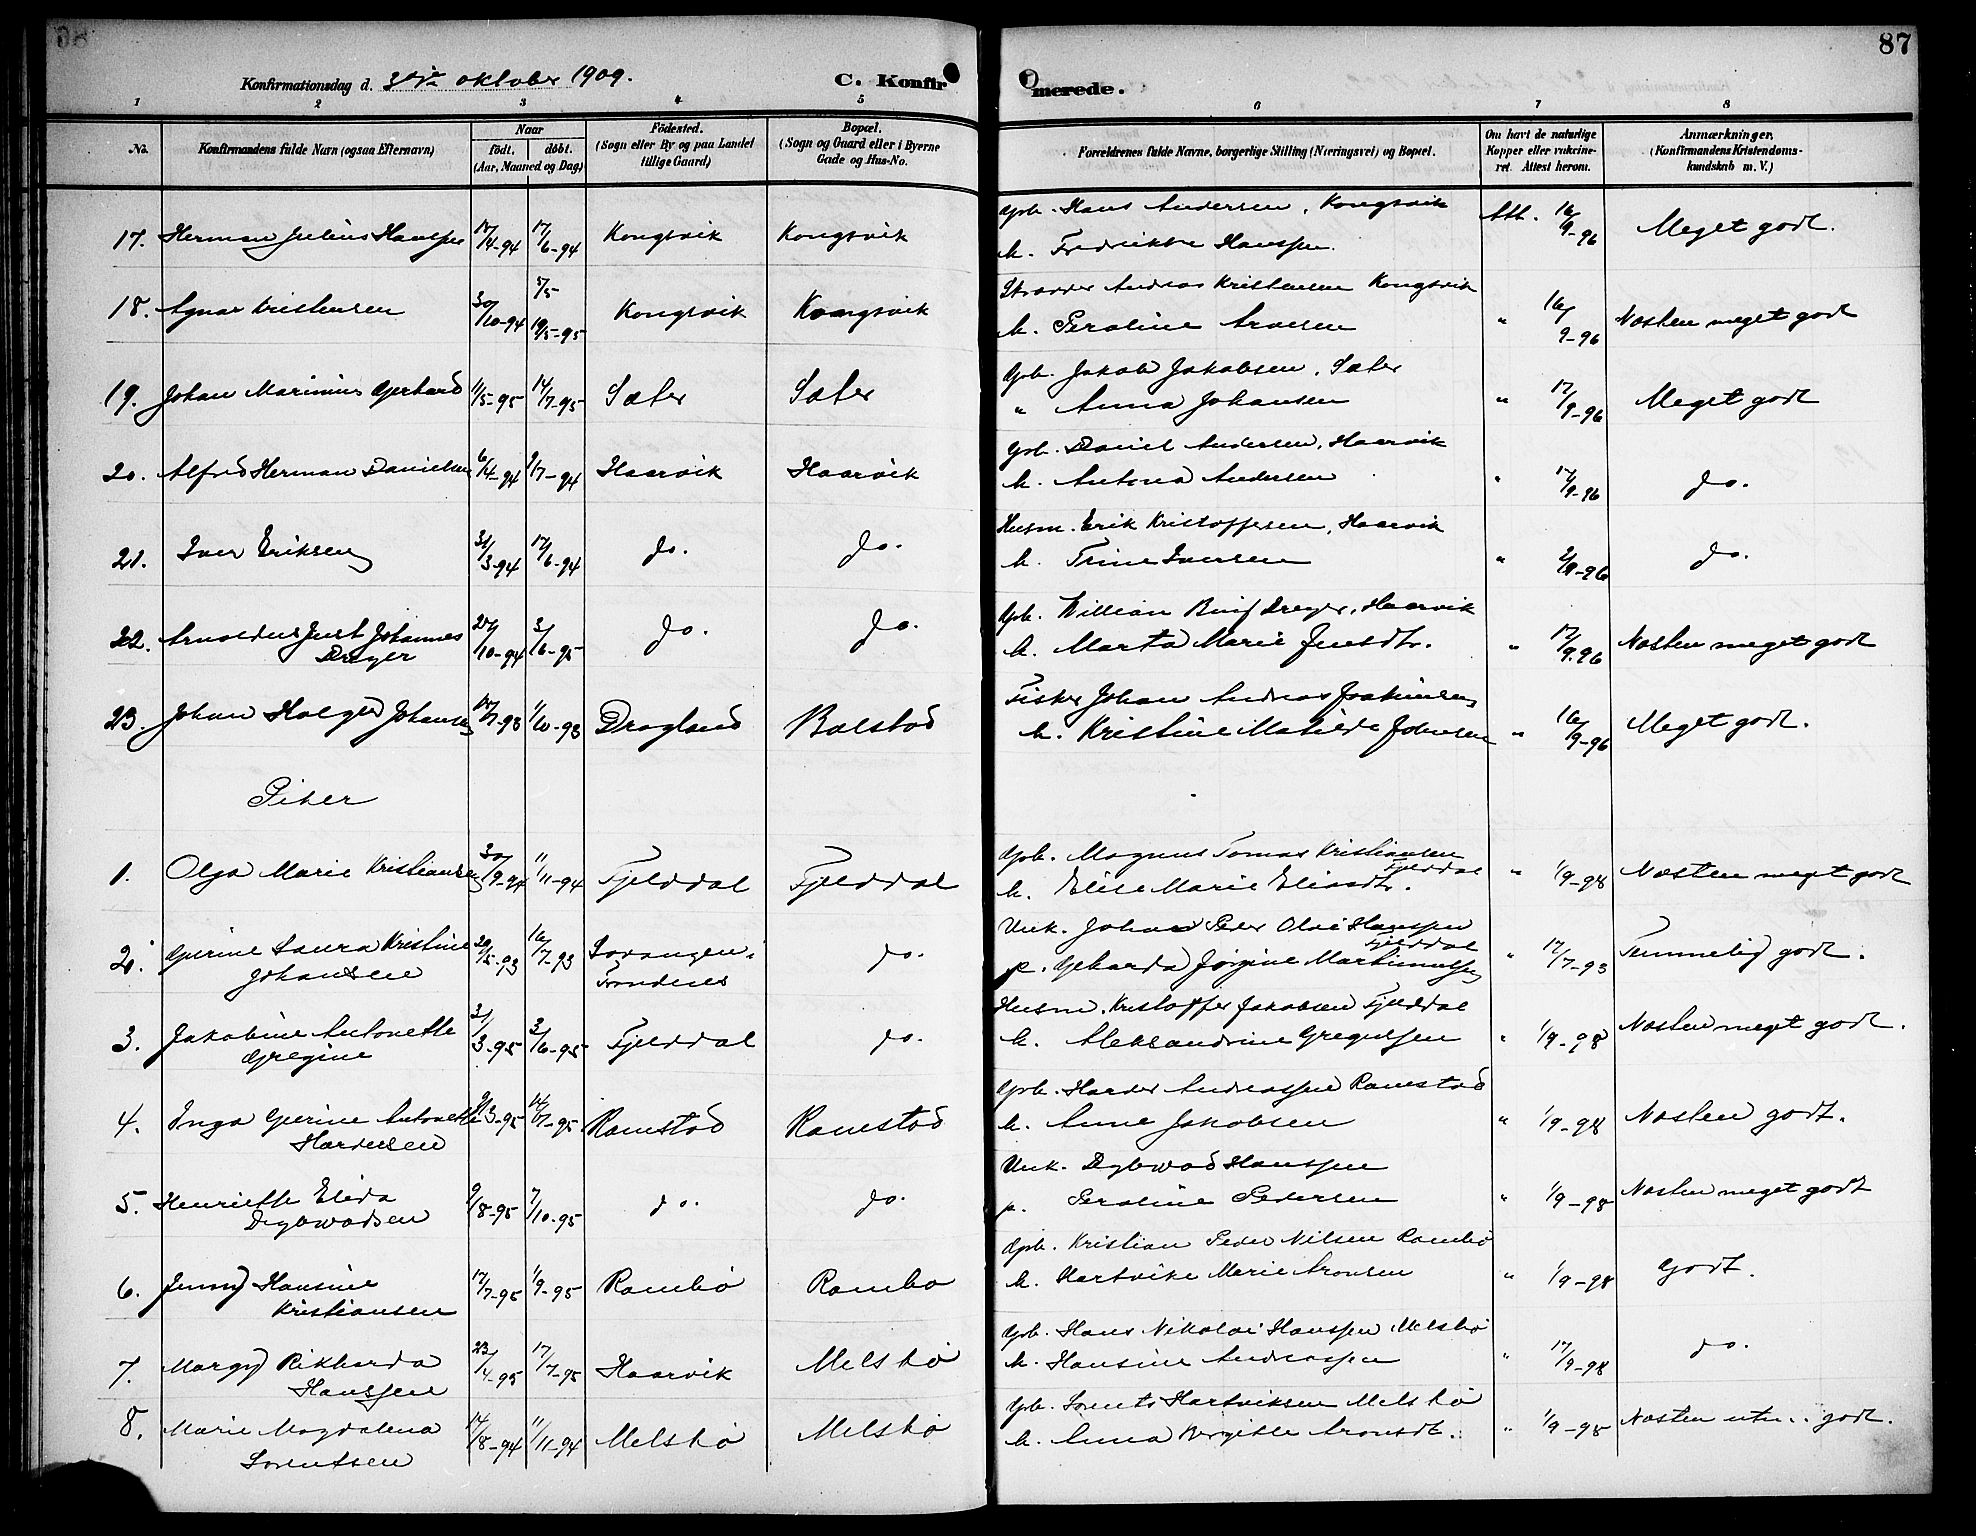 87
Konfirmationsdag d. 3die oktober 1909. C. Konfirmerede.
1 2 3 4 5 6 7 8
No. Konfirmandens fulde Navn (ogsaa Efternavn) Naar født. døbt. (Aar, Maaned og Dag) Fødested. (Sogn eller By og paa Landet tillige Gaard) Bopæl. (Sogn og Gaard eller i Byerne Gade og Hus-No. Forældrenes fulde Navne, borgerlige Stilling (Næringsvei) og Bopæl. Om havt de naturlige Kopper eller vakcineret. Attest herom. Anmærkninger. (Konfirmandens Kristendomskundskab m. V.)
Gpb. Hans Andersen, Kongsvik
17. Herman Julius Hanssen 17/6-94 Kongsvik Kongsvik Att. 16/9-96 Meget godt.
h. Fredrikke Hanssen.
Strandr Andreas Kristensen Kongsvik
18. Agnar Kristensen 30/10-94 19/5-95 Kongsvik Kongsvik " 16/9-96 Næsten meget godt
h. Peroline Arnesen
Gpb. Jakob Jakobsen, Sæter
19. Johan Marinius Gerhard 11/5-95 14/7-95 Sæter Sæter " 17/9-96 Meget godt
" Anna Johansen
Gpb. Daniel Andersen, Haarvik
20. Alfred Herman Danielsen 6/4-94 1/7-94 Haarvik Haarvik " 17/9-96 do.
h. Antona Andersen
Husm. Erik Kristoffersen, Haarvik
21. Iver Eriksen 31/3-94 17/6-94 do. do. " do.
h. Trine Iversen
Gpb. Willian Dreyer, Haarvik
22. Arnoldus Just Johannes Dreyer 3/6-95 do. do. " 17/9.96 Næsten meget godt
h. Marta Marie Jensdtr.
Fisker Johan Andreas Joakimsen
23. Johan Holger Johansen 1/10-93 Dragland Balstad " 16/9-96 Meget godt.
h. Kristine Matilde Johnsen
Piker
Gpb. Magnus Tomas Kristiansen Fjelddal
1. Olga Marie Kristiansen 30/9-94 11/11-94 Fjelddal Fjelddal " 1/9-98 Næsten meget godt
h. Elise Marie Eliasdtr.
Unk. Johan Peder Olai Hanssen Fjelddal
2. Gurine Laura Kristine Johansen 16/7-93 Sorangen, Trondenes do. " 17/7-93 Temmelig godt.
p. Geharda Jørgine Martinussen
Husm. Kristoffer Jakobsen Fjelddal
3. Jakobine Antonette Gregine 31/3-95 3/6-95 Fjelddal do. " 1/9-98 Næsten meget godt.
h. Aleksandrine Gregussen
Gpb. Harder Andreassen Ramstad
4. Inga Gurine Antonette Hardersen 9/3-95 14/7-95 Ramstad Ramstad " 1/9-98 Næsten godt.
h. Anne Jakobsen
Unk. Dybwad Hanssen
5. Henriette Elida Dybwadsen 9/8-95 7/10-95 do. do. " 1/9-98 Næsten meget godt
p. Peroline Pedersen
Gpb. Kristian Peder Nilsen Rambø
6. Jenny Hansine Kristiansen 17/7-95 1/9-95 Rambø Rambø " 1/9-98 Godt.
h. Hartvike Marie Aronsen
Gpb. Hans Nikolai Hanssen Melsbø
7. Margy Rikharda Hanssen 23/4-95 17/7-95 Haarvik Melsbø " 17/9-98 do.
h. Hansine Andreassen
Gpb. Lorents Hartviksen Melsbø
8. Marie Magdalena Lorentsen 14/8-94 11/11-94 Melsbø Melsbø " 1/9-98 Næsten godt.
h. Anna Bergitte Aronsdt.